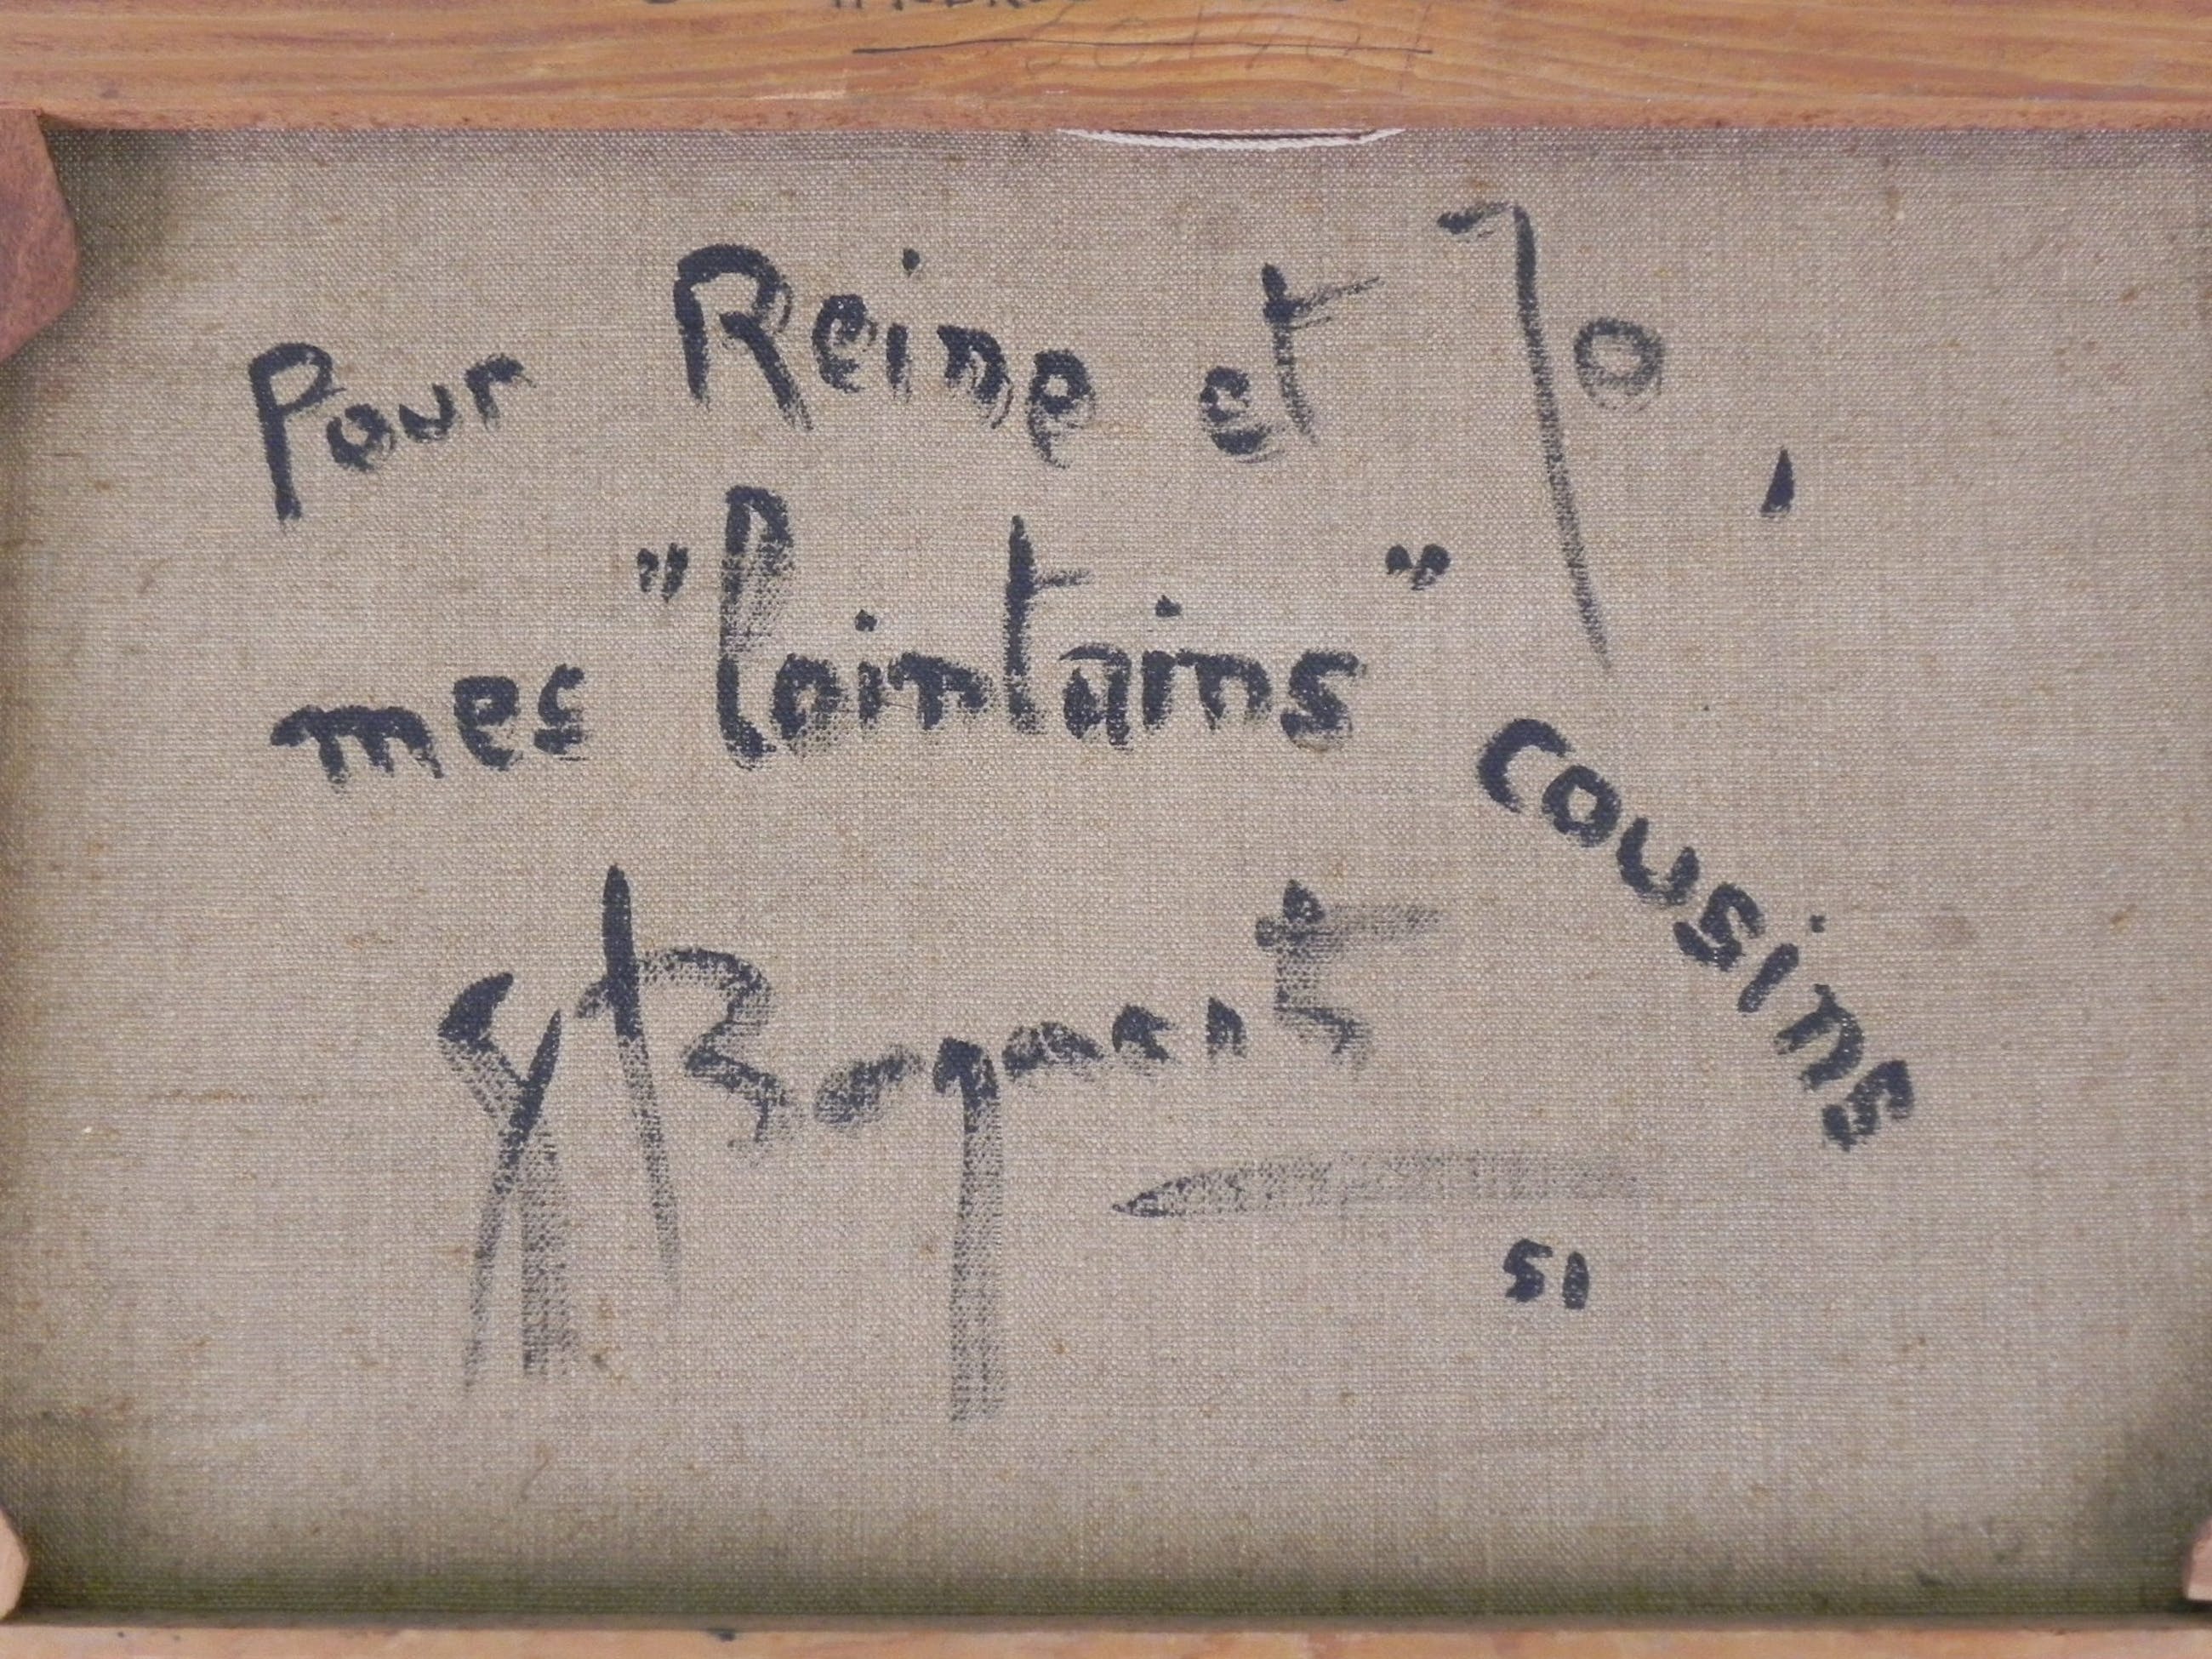 Pour Reine et Jo,
mes "lointains" cousins
Y Bogaert
51